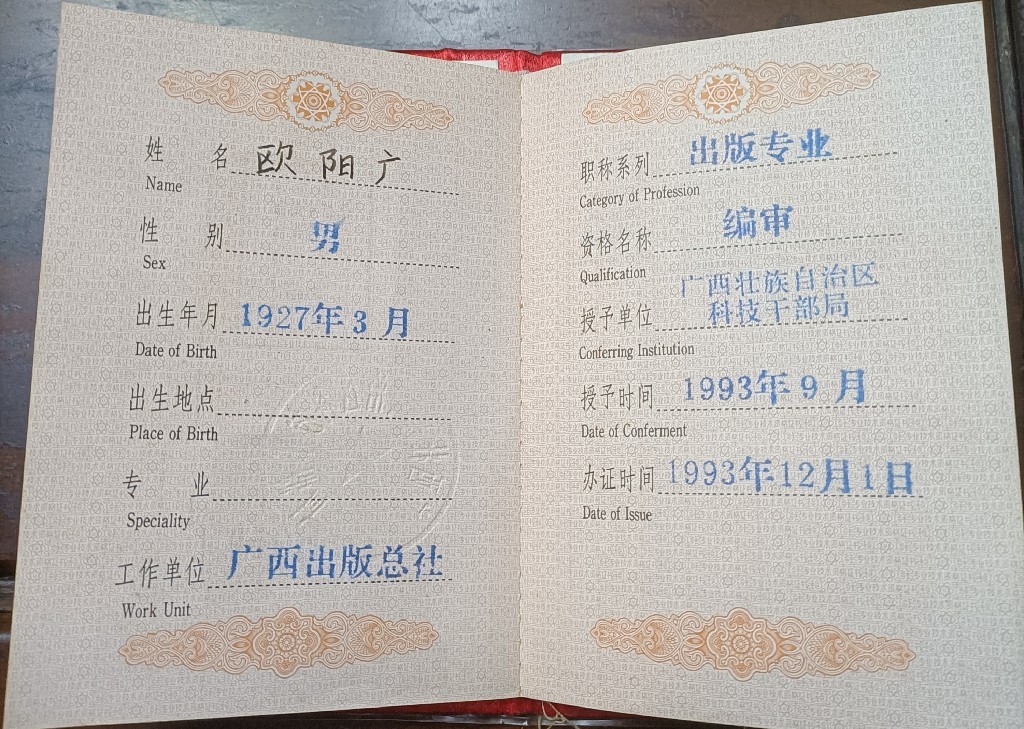 姓 名 欧阳广
Name
性 别 男
Sex
出生年月 1927年3月
Date of Birth
出生地点
Place of Birth
专 业
Speciality
工作单位 广西出版总社
Work Unit
职称系列 出版专业
Category of Profession
资格名称 编审
Qualification
广西壮族自治区
授予单位 科技干部局
Conferring Institution
授予时间 1993年9月
Date of Conferment
办证时间 1993年12月1日
Date of Issue